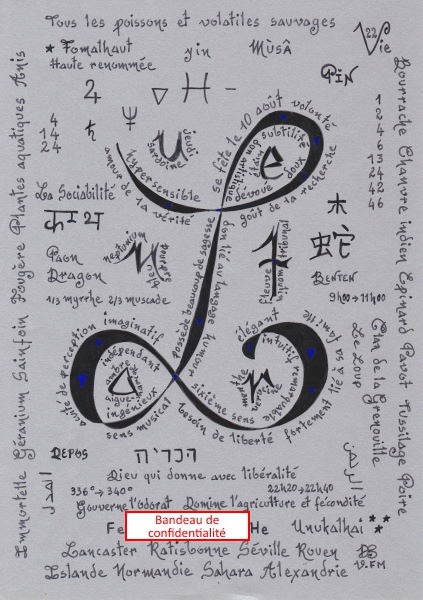 Tous les poissons et volatiles sauvages
22
Vie
★ Fomalhaut
Haute renommée
yin
Mùsâ
PiN
♃
♆
▽
♓
-
4
14
24
♄
1
2
4
6
13
24
42
46
Immortelle Géranium Sainfoin Fougère Plantes aquatiques Anis
Bourrache Chanvre indien Epinard Pavot Tussilage Poire
hypersensible
amour de la vérité
jeudi
sardoine
se fête le 10 août volonté
subtilité
bon artistique
étain
dévoué doux
goût de la recherche
La Sociabilité
木
蛇
Benten
9h00→11h00
Paon
Dragon
1/3 myrrhe 2/3 muscade
neptunium
pourpre
bleu
possède beaucoup de sagesse
don lié au langage humour
fleuve
tribunal
hôpital
imaginatif
acuité de perception
indépendant
ambre
ingénieux
sens musical
élégant
intuitif
remarquable
sixième sens
besoin de liberté
menthe
verveine
fortement lié à sa famille
Le Loup
Clan de la Grenouille
Repos
הבריה
Dieu qui donne avec libéralité
336°→340°
22h20→22h40
Gouverne l'odorat Domine l'agriculture et fécondité
Fe
Bandeau de
confidentialité
He
Unukalhai ★★
Lancaster Ratisbonne Séville Rouen
Islande Normandie Sahara Alexandrie
19.FM